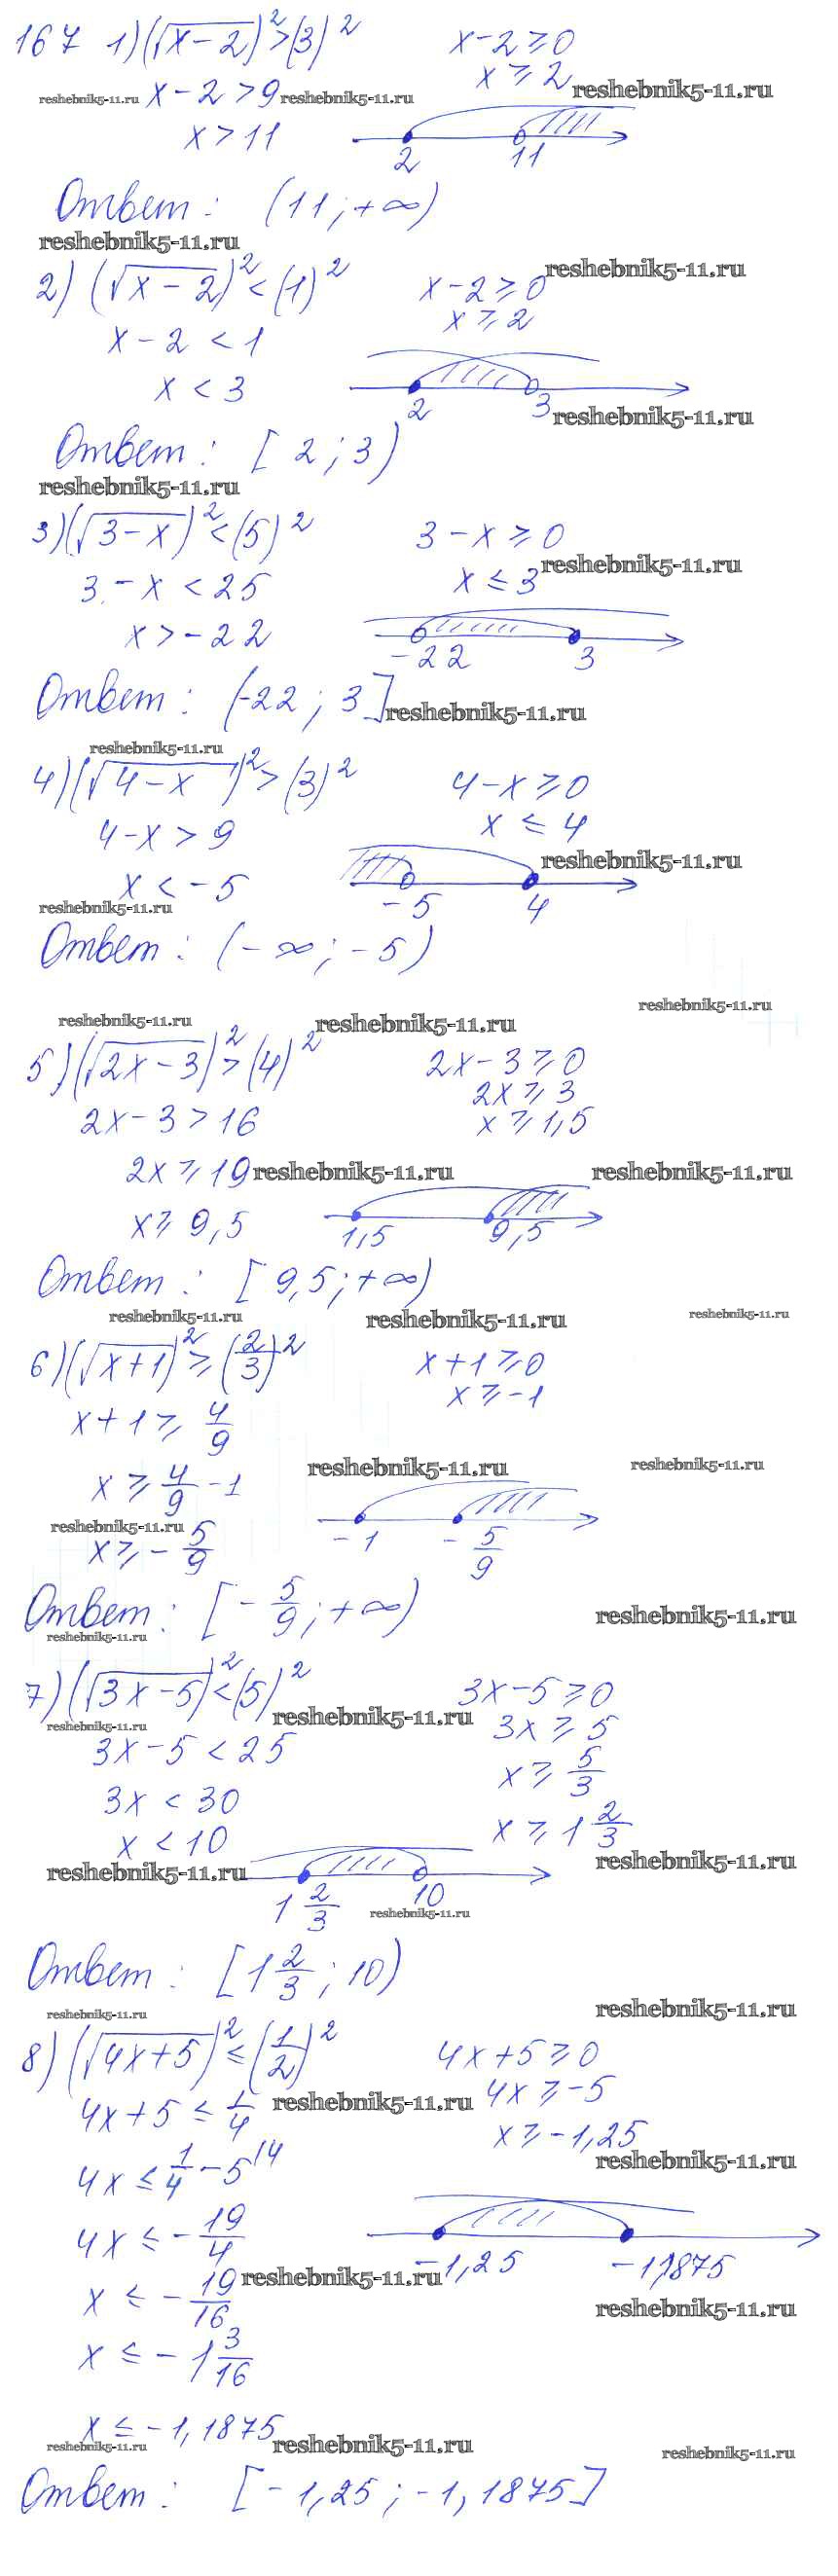 167 1) (√x-2)² > (3)² x-2 ≥ 0
x-2 > 9 x ≥ 2
reshebnik5-11.ru reshebnik5-11.ru reshebnik5-11.ru
x > 11
2 11
Ответ: (11; +∞)
reshebnik5-11.ru
2) (√x-2)² < (1)² x-2 ≥ 0
reshebnik5-11.ru
x-2 < 1 x ≥ 2
x < 3
2 3
reshebnik5-11.ru
Ответ: [2; 3)
reshebnik5-11.ru
3) (√3-x)² < (5)² 3-x ≥ 0
reshebnik5-11.ru
3-x < 25 x ≤ 3
x > -22
-22 3
Ответ: (-22; 3]
reshebnik5-11.ru
reshebnik5-11.ru
4) (√4-x)² > (3)² 4-x ≥ 0
4-x > 9 x ≤ 4
reshebnik5-11.ru
x < -5
-5 4
reshebnik5-11.ru
Ответ: (-∞; -5)
reshebnik5-11.ru
reshebnik5-11.ru reshebnik5-11.ru
5) (√2x-3)² > (4)² 2x-3 ≥ 0
2x ≥ 3
2x-3 > 16 x ≥ 1,5
2x ≥ 19
reshebnik5-11.ru reshebnik5-11.ru
x ≥ 9,5
1,5 9,5
Ответ: [9,5; +∞)
reshebnik5-11.ru reshebnik5-11.ru reshebnik5-11.ru
6) (√x+1)² ≥ (2/3)² x+1 ≥ 0
x ≥ -1
x+1 ≥ 4/9
reshebnik5-11.ru reshebnik5-11.ru
x ≥ 4/9 -1
reshebnik5-11.ru
x ≥ -5/9
-1 -5/9
Ответ: [-5/9; +∞)
reshebnik5-11.ru
reshebnik5-11.ru
7) (√3x-5)² < (5)² 3x-5 ≥ 0
reshebnik5-11.ru reshebnik5-11.ru
3x-5 < 25 3x ≥ 5
x ≥ 5/3
3x < 30
x < 10 x ≥ 1 2/3
reshebnik5-11.ru reshebnik5-11.ru
1 2/3 10
reshebnik5-11.ru
Ответ: [1 2/3; 10)
reshebnik5-11.ru reshebnik5-11.ru
8) (√4x+5)² ≤ (1/2)² 4x+5 ≥ 0
4x+5 ≤ 1/4 4x ≥ -5
reshebnik5-11.ru
x ≥ -1,25
4x ≤ 1/4 -5 14
reshebnik5-11.ru
4x ≤ -19/4
-1,25 -1,1875
x ≤ -19/16
reshebnik5-11.ru
reshebnik5-11.ru
x ≤ -1 3/16
x ≤ -1,1875
reshebnik5-11.ru reshebnik5-11.ru reshebnik5-11.ru
Ответ: [-1,25; -1,1875]